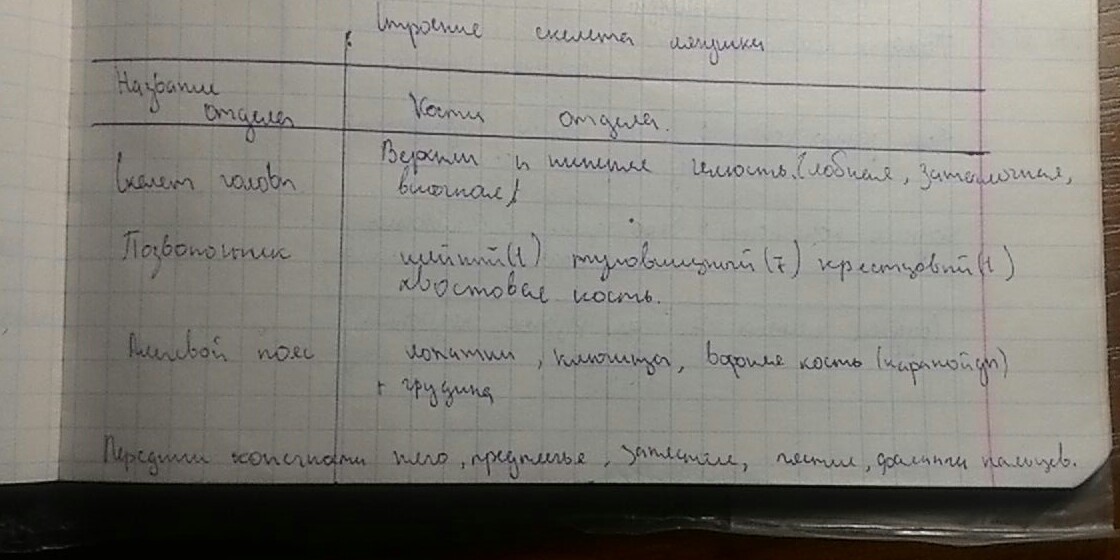 Строение скелета лягушки
Название
отдела
Кости отдела.
Скелет головы
Верхняя и нижняя челюсть. (лобная, затылочная,
височная)
Позвоночник
шейный (1) туловищный (7) крестцовый (1)
хвостовая кость.
Плечевой пояс
лопатки, ключицы, вороньи кость (карапойды)
+ грудина
Передние конечности плечо, предплечье, запястье, пястье, фаланги пальцев.